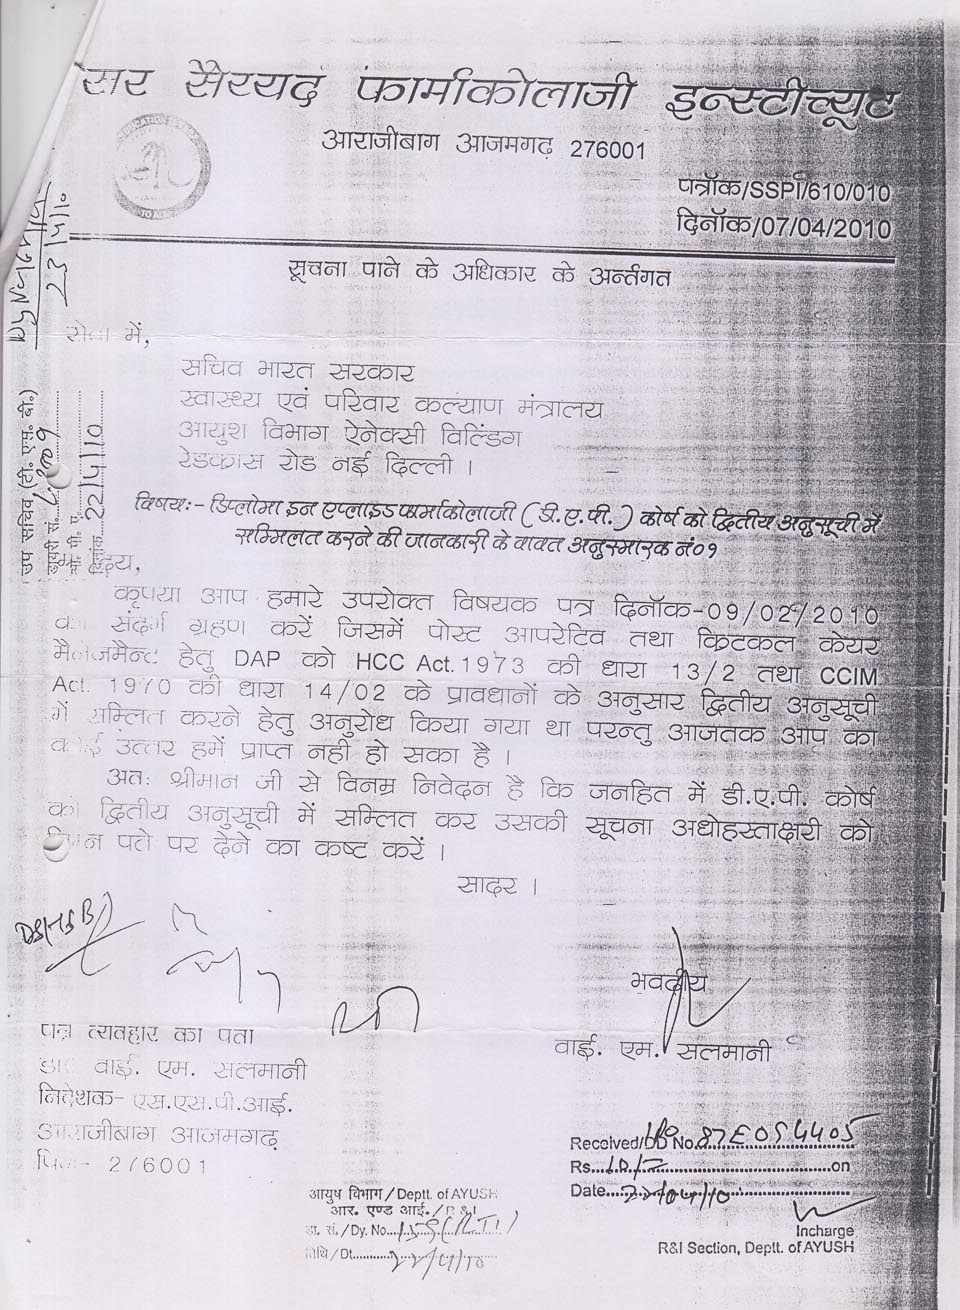 सर सैय्यद फार्माकोलाजी इन्स्टीच्यूट
आराजीबाग आजमगढ़ 276001
पत्रॉक/SSPI/610/010
दिनॉक/07/04/2010
सूचना पाने के अधिकार के अर्न्तगत
सेवा में,
सचिव भारत सरकार
स्वास्थ्य एवं परिवार कल्याण मंत्रालय
आयुश विभाग ऐनेक्सी विल्डिंग
रेडकास रोड नई दिल्ली ।
विषय:- डिप्लोमा इन एप्लाइड फार्माकोलाजी (डी.ए.पी.) कोर्ष को द्वितीय अनुसूची में
सम्मिलत करने की जानकारी के वावत अनुस्मारक नं०१
कृपया आप हमारे उपरोक्त विषयक पत्र दिनॉक-09/02/2010
का संदर्ग ग्रहण करें जिसमें पोस्ट आपरेटिव तथा क्रिटकल केयर
मैनेजमैन्ट हेतु DAP को HCC Act. 1973 की धारा 13/2 तथा CCIM
Act. 1970 की धारा 14/02 के प्रावधानों के अनुसार द्वितीय अनुसूची
में सम्लित करने हेतु अनुरोध किया गया था परन्तु आजतक आप का
कोई उत्तर हमें प्राप्त नही हो सका है ।
अतः श्रीमान जी से विनम्र निवेदन है कि जनहित में डी.ए.पी. कोर्ष
को द्वितीय अनुसूची में सम्लित कर उसकी सूचना अधोहस्ताक्षरी को
निम्न पते पर देने का कष्ट करें ।
सादर ।
भवदीय
वाई. एम. सलमानी
पत्र व्यवहार का पता
डा० वाई. एम. सलमानी
निदेशक- एस.एस.पी.आई.
आराजीबाग आजमगढ़
पिन- 276001
उप सचिव (टी. एस. बी.)
22/4/10
Received/DD No. 87E054405
Rs. 10/- on
Date 22/04/10
Incharge
R&I Section, Deptt. of AYUSH
आयुष विभाग/Deptt. of AYUSH
आर. एण्ड आई./R & I
डा. सं./Dy. No.
तिथि/Dt. 22/4/10